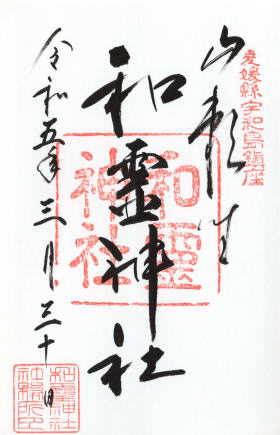 愛媛縣宇和島鎮座
山頼
和靈神社
和靈神社
令和五年三月三十日
和靈神社社務所印